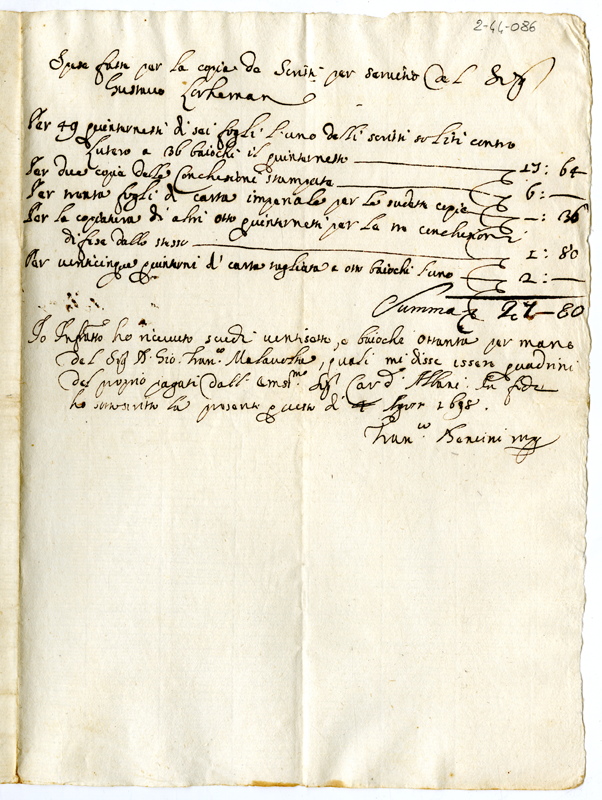 2-44-086
Spese fatte per la copia de Scritti per servitio del Sig.
Gustavo
Per 49 quinternetti di sei fogli l'uno delli scritti soliti contro
Lutero a 36 baiochi il quinternetto 17: 64
Per due copie delle Conchiusioni stampate 6: —
Per trenta fogli di carta imperiale per le sudette copie —: 36
Per la copiatura di altri otto quinternetti per la
di fese dallo stesso 1: 80
Per venticinque quinterni di carta tagliata a otto baiochi l'uno 2: —
Summa 27–80
Io Infratto ho ricevuto scudi ventisette, e baioche ottanta per mano
del Sig. D. Gio. Fran.co quali mi disse essere quadrini
del proprio pagati dall' Emin.mo Sig. Card. Albani. In fede
ho sottoscritto la presente questo dì 4 1698.
Fran.co Bencini mpp